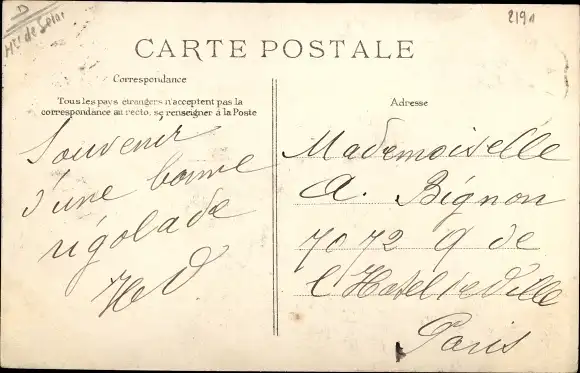 D
Hts de Seine
2191
CARTE POSTALE
Correspondance
Tous les pays étrangers n'acceptent pas la
correspondance au recto, se renseigner à la Poste
Adresse
Souvenir
d'une bonne
rigolade
Mademoiselle
A. Bignon
70 72 Q de
l'Hotel de Ville
Paris